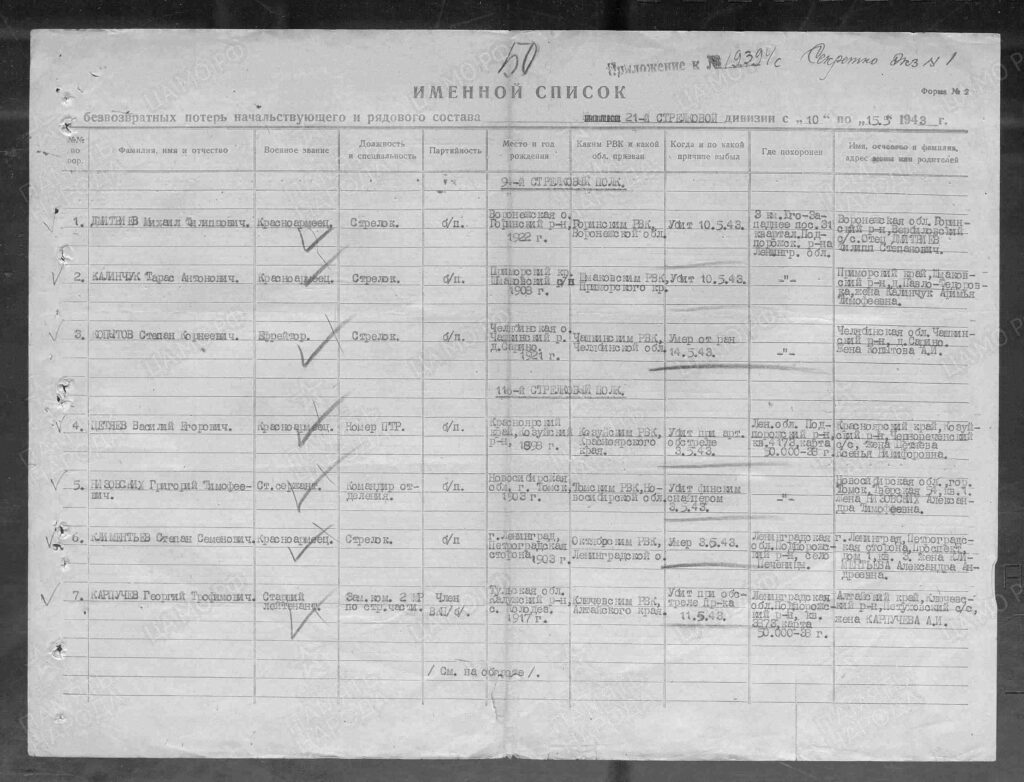 50
Приложение к № 19394с Секретно экз № 1
ИМЕННОЙ СПИСОК
Форма № 2
безвозвратных потерь начальствующего и рядового состава 21-й СТРЕЛКОВОЙ дивизии с „10" по „15.5 1943 г.
№№ по пор. Фамилия, имя и отчество Военное звание Должность и специальность Партийность Место и год рождения Каким РВК и какой обл. призван Когда и по какой причине выбыл Где похоронен Имя, отчество и фамилия, адрес жены или родителей
94-й СТРЕЛКОВЫЙ ПОЛК.
1. Михаил Филиппович. Красноармеец. Стрелок. б/п. Воронежская о. р-н, 1922 г. РВК, Воронежской обл. Убит 10.5.43. 3 км. Юго-Западнее пос. 31 квартал, Подпорожск. р-на Ленингр. обл. Воронежская обл. р-н, с/с. Отец Филипп Степанович.
2. КАЛИНЧУК Тарас Антонович. Красноармеец. Стрелок. б/п. Приморский кр. р/н 1908 г. Шмаковским РВК, Приморского кр. Убит 10.5.43. -"- Приморский край, Шмаковский р-н, д. Павло-Федоровка, жена Калинчук Тимофеевна.
3. КОПЫТОВ Степан Корнеевич. Ефрейтор. Стрелок. б/п. Челябинская о. Чашинский р. 1921 г. Чашинским РВК, Челябинской обл. Умер от ран 14.5.43. -"- Челябинская обл. Чашинский р-н, жена Копытова А.И.
116-й СТРЕЛКОВЫЙ ПОЛК.
4. Василий Егорович. Красноармеец. Номер ПТР. б/п. Красноярский край, Козульский р-н, 1898 г. Козульским РВК, Красноярского края. Убит при арт. обстреле 3.5.43. Лен. обл. Подпорожский р-н, карта 50.000-38 г. Красноярский край, Козульский р-н, Чернореченский с/с, жена Ксенья Никифоровна.
5. НИЗОВСКИХ Григорий Тимофеевич. Ст. сержант. Командир отделения. б/п. Новосибирская обл. г. Томск, 1903 г. Томским РВК, Новосибирской обл. Убит финским снайпером 3.5.43. Новосибирская обл. гор. Томск, жена Александра Тимофеевна.
6. КЛИМЕНТЬЕВ Степан Семенович. Красноармеец. Стрелок. б/п. г. Ленинград, Петроградская сторона, 1903 г. Октябрским РВК, Ленинградской о. Умер 3.5.43. Ленинградская обл. Подпорожский р-н, село Печеницы. г. Ленинград, Петроградская сторона, жена Александра Андреевна.
7. КАРПУЧЕВ Георгий Трофимович. Старший лейтенант. Зам. ком. по стр. части. Член ВКП/б/. Тульская обл. р-н, 1917 г. Ключевским РВК, Алтайского края. Убит при обстреле 11.5.43. Ленинградская обл. Подпорожский р-н, кв. карта 50.000-38 г. Алтайский край, Ключевский р-н, Петуховский с/с, жена КАРПУЧЕВА А.И.
/ См. на обороте /.